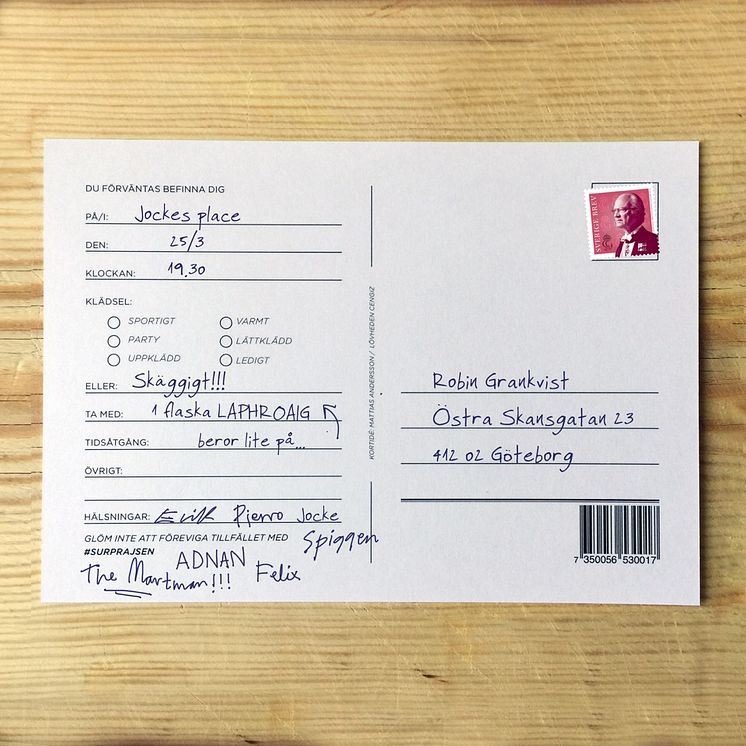 DU FÖRVÄNTAS BEFINNA DIG
PÅ/I: Jockes place
DEN: 25/3
KLOCKAN: 19.30
KLÄDSEL:
SPORTIGT VARMT
PARTY LÄTTKLÄDD
UPPKLÄDD LEDIGT
ELLER: Skäggigt!!!
TA MED: 1 flaska LAPHROAIG
TIDSÅTGÅNG: beror lite på...
ÖVRIGT:
HÄLSNINGAR: Erik Pierro Jocke
GLÖM INTE ATT FÖREVIGA TILLFÄLLET MED
#SURPRAJSEN
Spiggen
ADNAN
The Martman!!! Felix
KORTIDÉ: MATTIAS ANDERSSON / LÖVHEDEN CENGIZ
SVERIGE BREV
Robin Grankvist
Östra Skansgatan 23
412 02 Göteborg
7 350056 530017